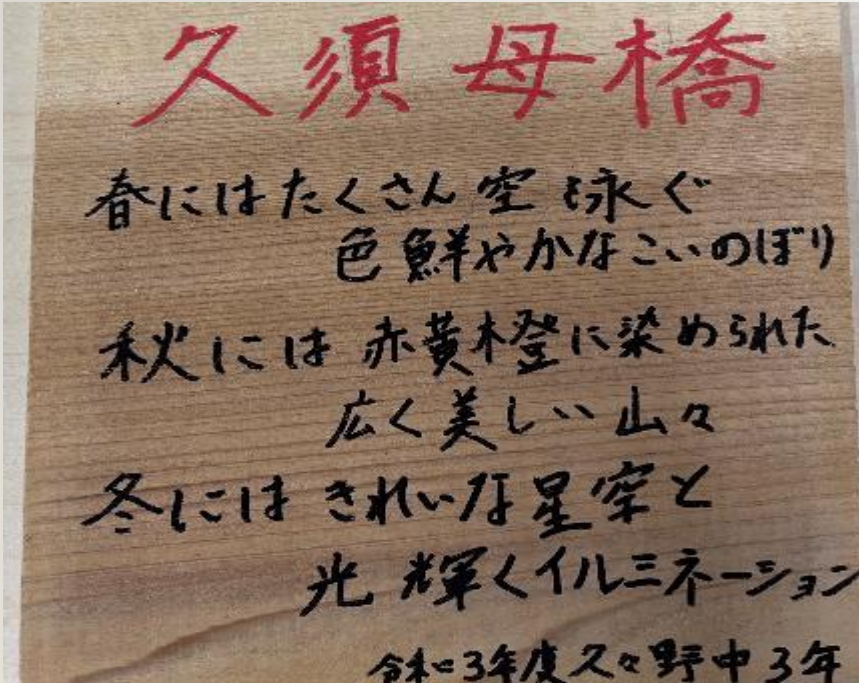 久須母橋
春にはたくさん空を泳ぐ
色鮮やかなこいのぼり
秋には赤黄橙に染められた
広く美しい山々
冬にはきれいな星空と
光輝くイルミネーション
令和3年度久々野中3年